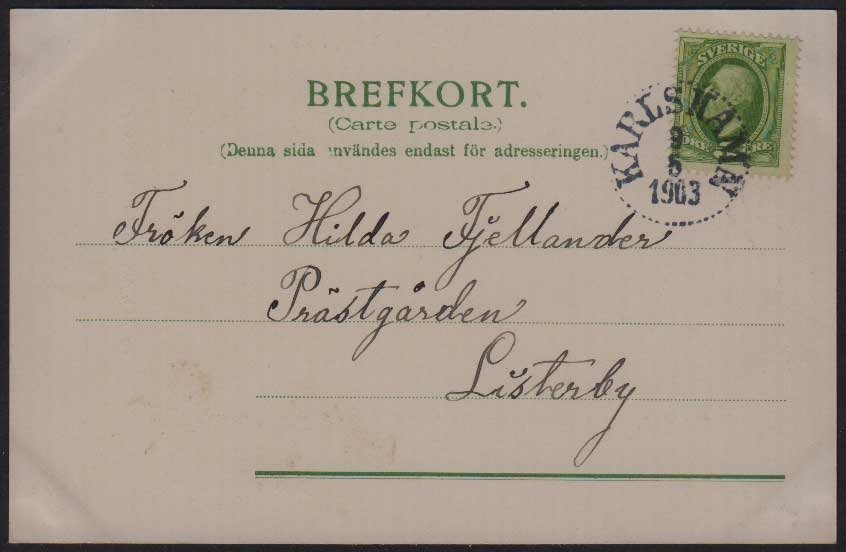 BREFKORT.
(Carte postale.)
(Denna sida användes endast för adresseringen.)
SVERIGE
KARLSHAMN
9
5
1903
Fröken Hilda Fjellander
Prästgården
Listerby